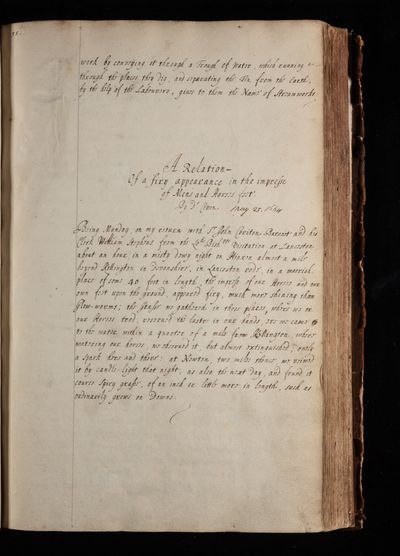 work by conveying it through a Trough of Water, which running
through the places they dig, and separating the Tin from the Earth,
by the help of the Labourers, gives to them the Name of Streamworks.
A Relation
Of a firy appearance in the impresse
of Mens and Horses feet.
By Dr.
May 25.
Being Monday on my return with Sr John Coriton Baronet and his
Clerk William Stephens from the Visitation at Lanceston
about an houre, in a misty dewy night on almost a mile
beyond in Devonshire, in Lanceston rode, in a moorish
place of som 40 foot in length, the impress of our Horses and our
own feet upon the ground, appeared firy, much more shining than
Glow-worms; the sparks we gathered in those places, where we or
our Horses trod, reserved the luster in our hands, ere we came
to the water within a quarter of a mile from where
watering our horses, we observed it, but almost extinguished, only
a spark here and there: at Newton, two miles thence we veiwed
it by candle-light that night, as also the next day, and found it
course Spiry grasse, of an inch or little more in length, such as
ordinarily grows on Downs.